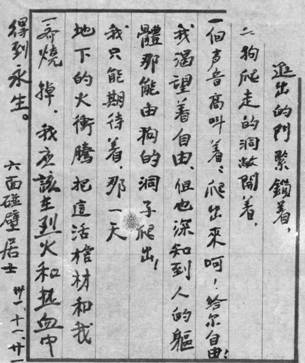 進出的門緊鎖着,
狗爬走的洞敞開着,
一個声音高叫着:爬出來呵!給尔自由!
我渴望着自由,但也深知到人的軀
體那能由狗的洞子爬出!
我只能期待着,那一天
地下的火衝騰把這活棺材和我
一齊燒掉,我应該在烈火和热血中
得到永生。
六面碰壁居士 卅一·十一·廿一